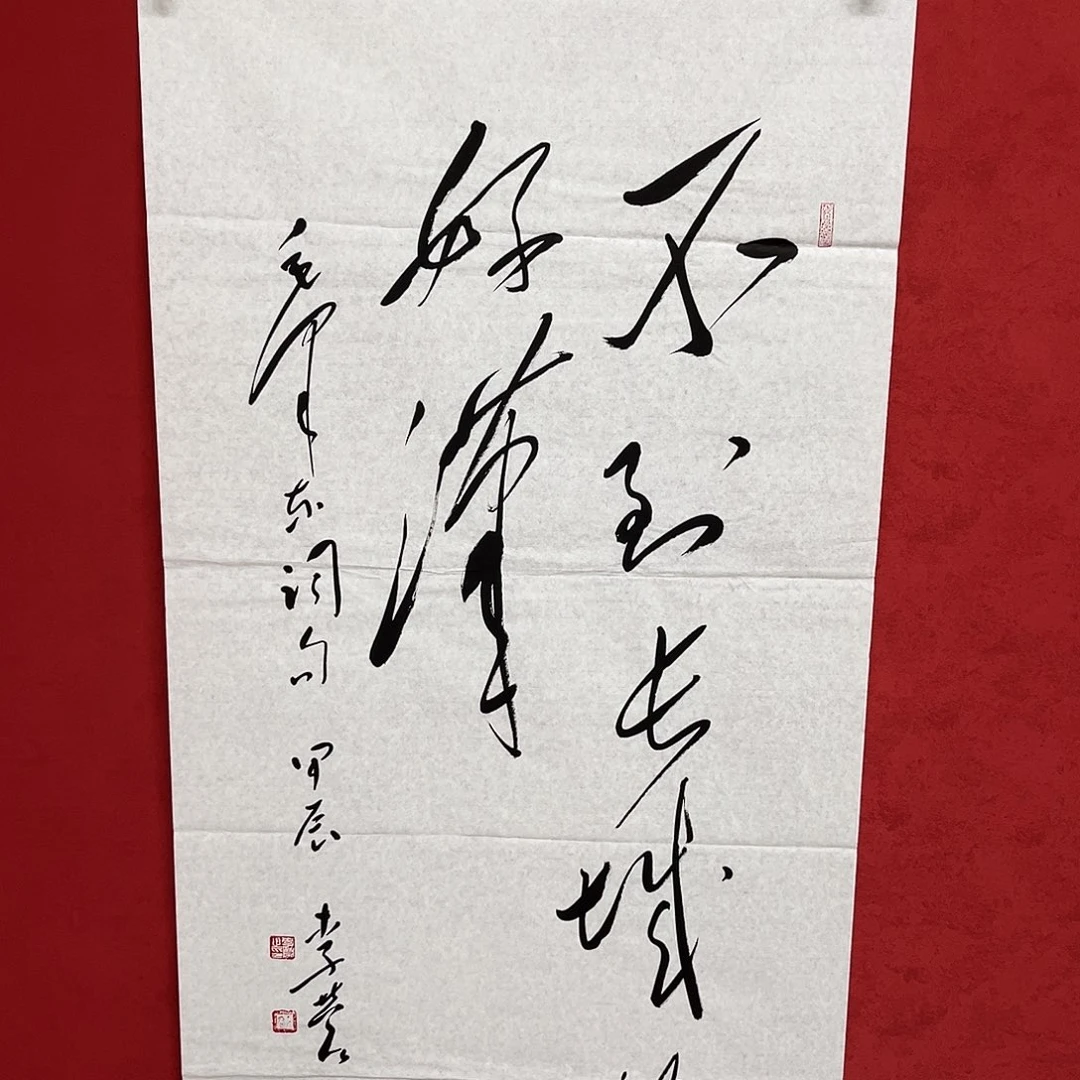 不到长城
好汉
毛泽东词句 甲辰 李